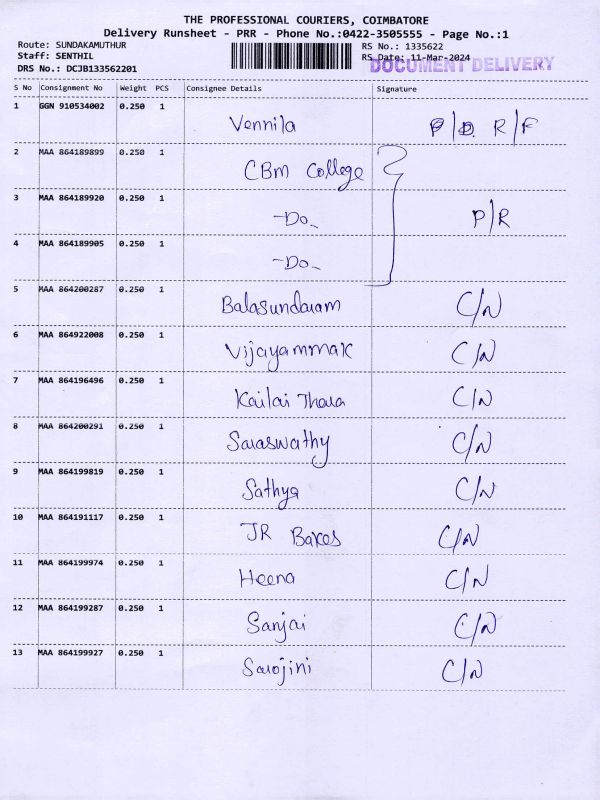 THE PROFESSIONAL COURIERS, COIMBATORE
Delivery Runsheet - PRR - Phone No.:0422-3505555 - Page No.:1
Route: SUNDAKAMUTHUR RS No.: 1335622
Staff: SENTHIL RS Date: 11-Mar-2024
DOCUMENT DELIVERY
DRS No.: DCJB133562201
S No Consignment No Weight PCS Consignee Details Signature
1 GGN 910534002 0.250 1 Vennila P/D. R/F
2 MAA 864189899 0.250 1 CBM College
3 MAA 864189920 0.250 1 -Do- P/R
4 MAA 864189905 0.250 1 -Do-
5 MAA 864200287 0.250 1 Balasundaram C/N
6 MAA 864922008 0.250 1 Vijayammak C/N
7 MAA 864196496 0.250 1 Kailai Thara C/N
8 MAA 864200291 0.250 1 Saraswathy C/N
9 MAA 864199819 0.250 1 Sathya C/N
10 MAA 864191117 0.250 1 JR Bakes C/N
11 MAA 864199974 0.250 1 Heena C/N
12 MAA 864199287 0.250 1 Sanjai C/N
13 MAA 864199927 0.250 1 Sarojini C/N